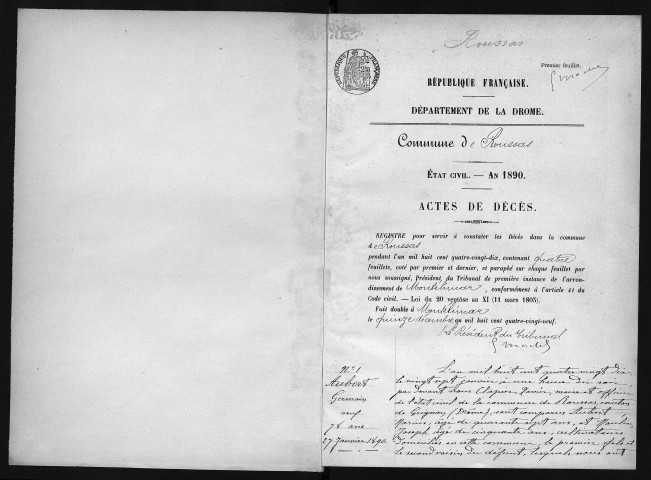 Roussas
Premier feuillet.
RÉPUBLIQUE FRANÇAISE.
DÉPARTEMENT DE LA DROME.
Commune de Roussas
ÉTAT CIVIL. — AN 1890.
ACTES DE DÉCÈS.
REGISTRE pour servir à constater les Décès dans la commune
de Roussas
pendant l'an mil huit cent quatre-vingt-dix, contenant quatre
feuillets, coté par premier et dernier, et paraphé sur chaque feuillet par
nous soussigné, Président du Tribunal de première instance de l'arron-
dissement de Montélimar, conformément à l'article 41 du
Code civil. — Loi du 20 ventôse an XI (11 mars 1803).
Fait double à Montélimar
le quinze décembre an mil huit cent quatre-vingt-neuf.
Le Président du Tribunal
N° 1
Aubert
Germain
veuf
78 ans
27 Janvier 1890
L'an mil huit cent quatre vingt dix
le vingt sept janvier à une heure du soir,
par devant nous Clapier, Xavier, maire et officier
de l'état civil de la commune de Roussas, canton
de Grignan (Drôme), sont comparus Aubert
âgé de quarante sept ans, et
Joseph, âgé de cinquante ans, cultivateurs
domiciliés en cette commune, le premier fils et
le second voisin du défunt, lesquels nous ont